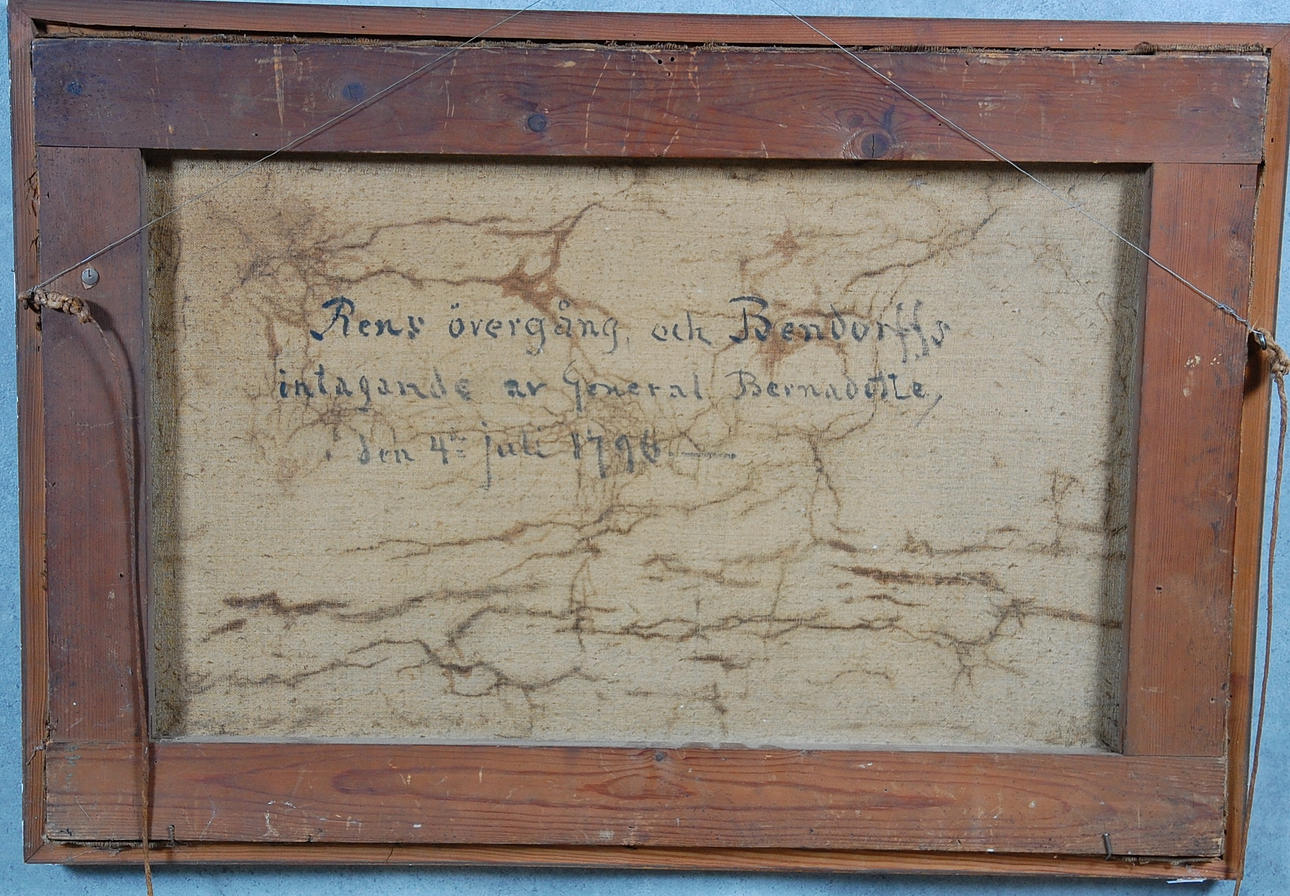 Rens övergång, och Bendorffs
intagande av General Bernadotte,
den 4de juli 1796